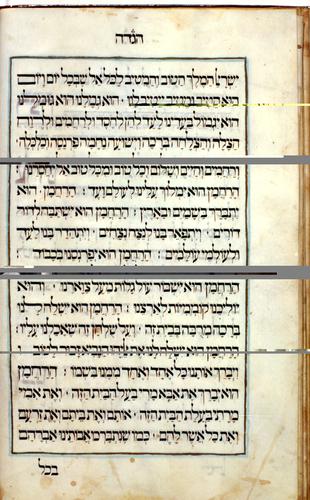 הגדה
ישראל המלך הטוב והמטיב לכל אל שבכל יום ויום
הוא יגמול בעדינו לעד לחן לחסד ולרחמים ולרוח
הצלה והצלחה ברכה וישועה נחמה פרנסה וכלכלה
ורחמים וחיים ושלום וכל טוב ומכל טוב אל יחסרנו
הרחמן הוא ימלוך עלינו לעולם ועד הרחמן הוא
יתברך בשמים ובארץ הרחמן הוא ישתבח לדור
דורים ויתפאר בנו לנצח נצחים ויתהדר בנו לעד
ולעולמי עולמים הרחמן הוא יפרנסנו בכבוד
הרחמן הוא ישבור עול גלות מעל צוארנו והוא
יוליכנו קוממיות לארצנו הרחמן הוא ישלח לנו
ברכה מרובה בבית זה ועל שלחן זה שאכלנו עליו
ויברך אותנו כל אחד ואחד ממנו בשמו הרחמן
הוא יברך את אבא מרי בעל הבית הזה ואת אמי
מרתי בעלת הבית הזה אותם ואת ביתם ואת זרעם
ואת כל אשר להם כמו שנתברכו אבותינו אברהם
בכל